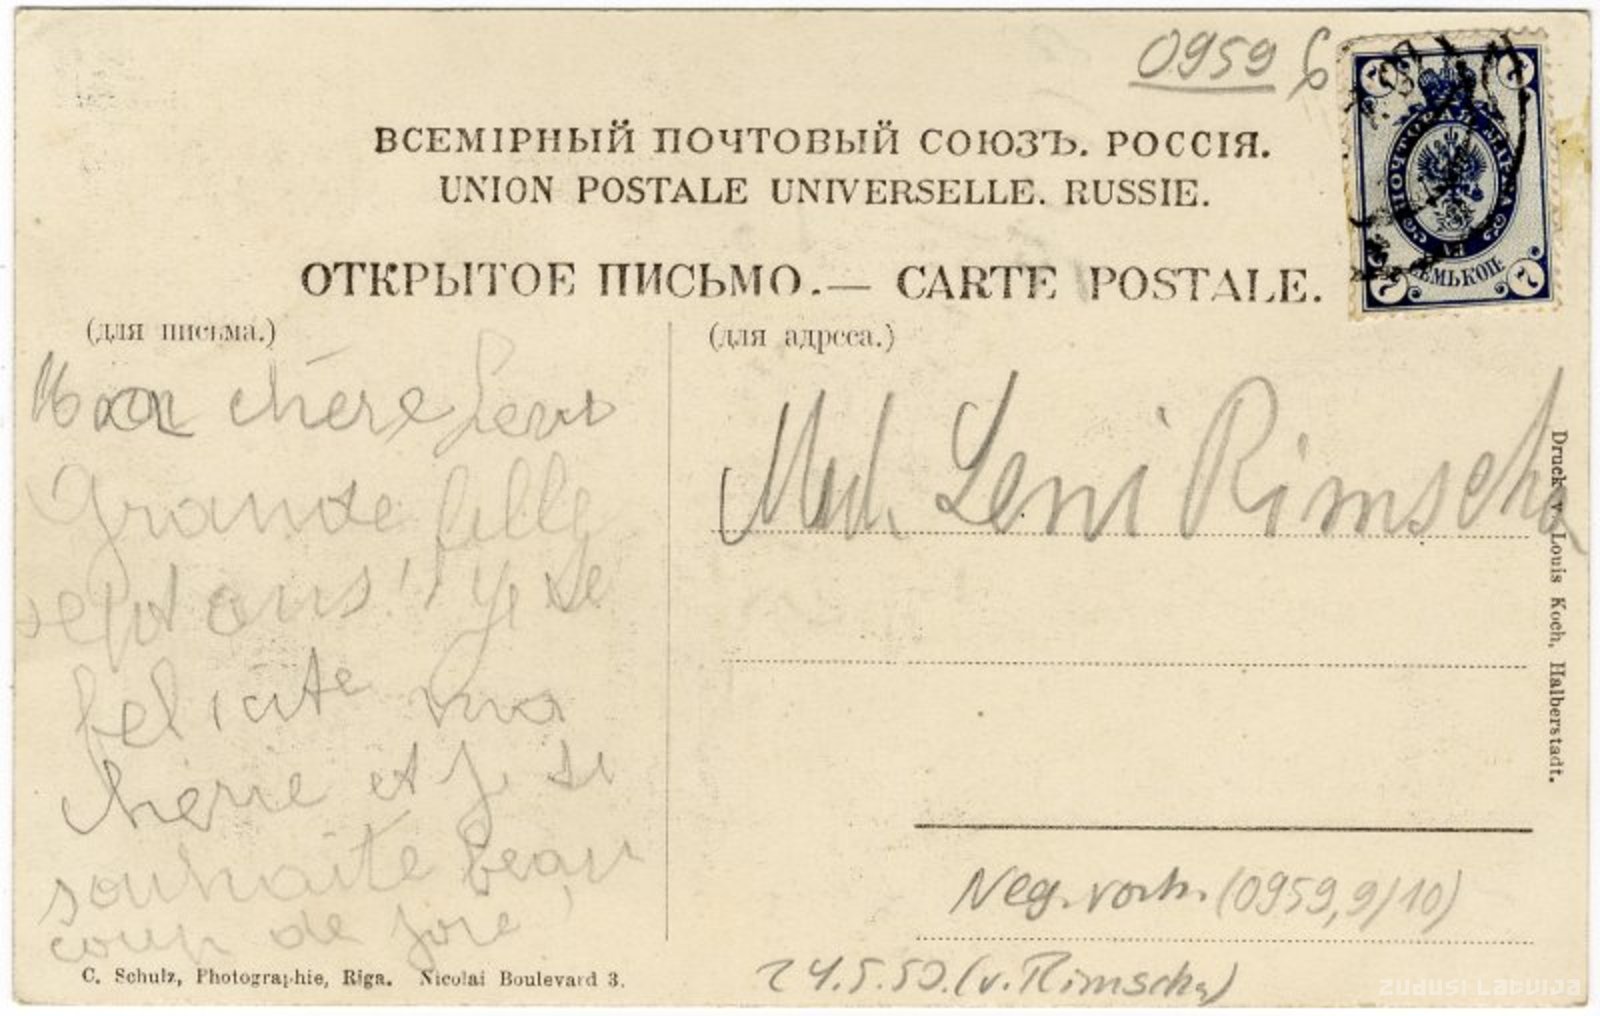 0959 6
ВСЕМІРНЫЙ ПОЧТОВЫЙ СОЮЗЪ. РОССІЯ.
UNION POSTALE UNIVERSELLE. RUSSIE.
ОТКРЫТОЕ ПИСЬМО.— CARTE POSTALE.
ПОЧТОВАЯ МАРКА
СЕМЬ КОП.
7 7 7 7
(для письма.)
Mon chère Leni
Grande fille
sept ans! Je te
felicite ma
chérie et je te
souhaite beau
coup de joie
(для адреса.)
Md. Leni Rimscha
Druck v. Louis Koch, Halberstadt.
Neg. vorh. (0959,9/10)
24.5.50. (v. Rimscha)
C. Schulz, Photographie, Riga. Nicolai Boulevard 3.
zudusi Latvija